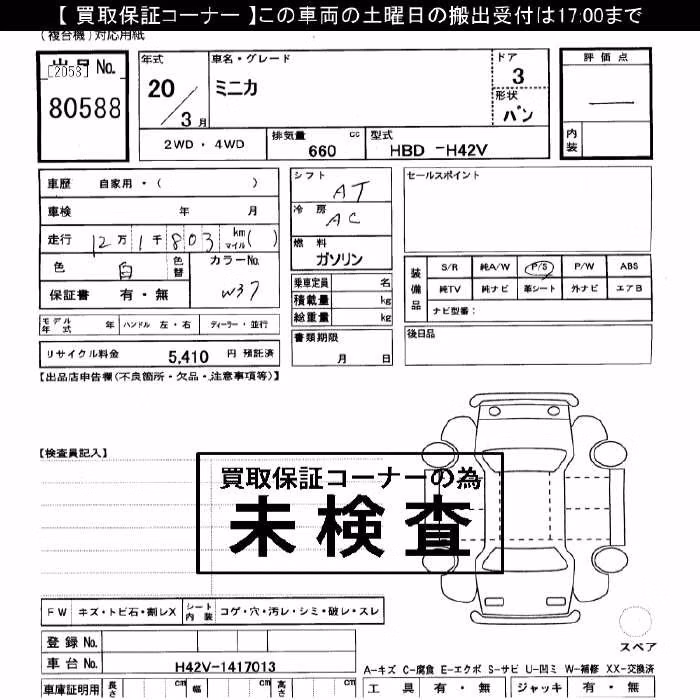 【 買取保証コーナー 】この車両の土曜日の搬出受付は17:00まで
(複合機)対応用紙
出品No.
[2053]
80588
年式
20/3月
車名・グレード
ミニカ
ドア
3
形状
バン
評価点
—
内装
2WD・4WD
排気量 cc
660
型式
HBD -H42V
車歴 自家用・( )
車検 年 月
走行 12万1千803 km マイル ( )
色 白 色替 カラーNo. W37
保証書 有・無
シフト AT
冷房 AC
燃料 ガソリン
乗車定員 名
積載量 kg
総重量 kg
セールスポイント
装備品
S/R 純A/W P/S P/W ABS
純TV 純ナビ 革シート 外ナビ エアB
ナビ型番:
モデル年式 年 ハンドル 左・右 ディーラー・並行
書類期限
月 日
後日品
リサイクル料金 5,410 円 預託済
【出品店申告欄(不良箇所・欠品・注意事項等)】
【検査員記入】
買取保証コーナーの為
未検査
FW キズ・トビ石・割レX シート内装 コゲ・穴・汚レ・シミ・破レ・スレ
スペア
登録No.
車台No. H42V-1417013
A-キズ C-腐食 E-エクボ S-サビ U-凹ミ W-補修 XX-交換済
車庫証明用 長さ cm 幅 cm 高さ cm
工具 有・無 ジャッキ 有・無